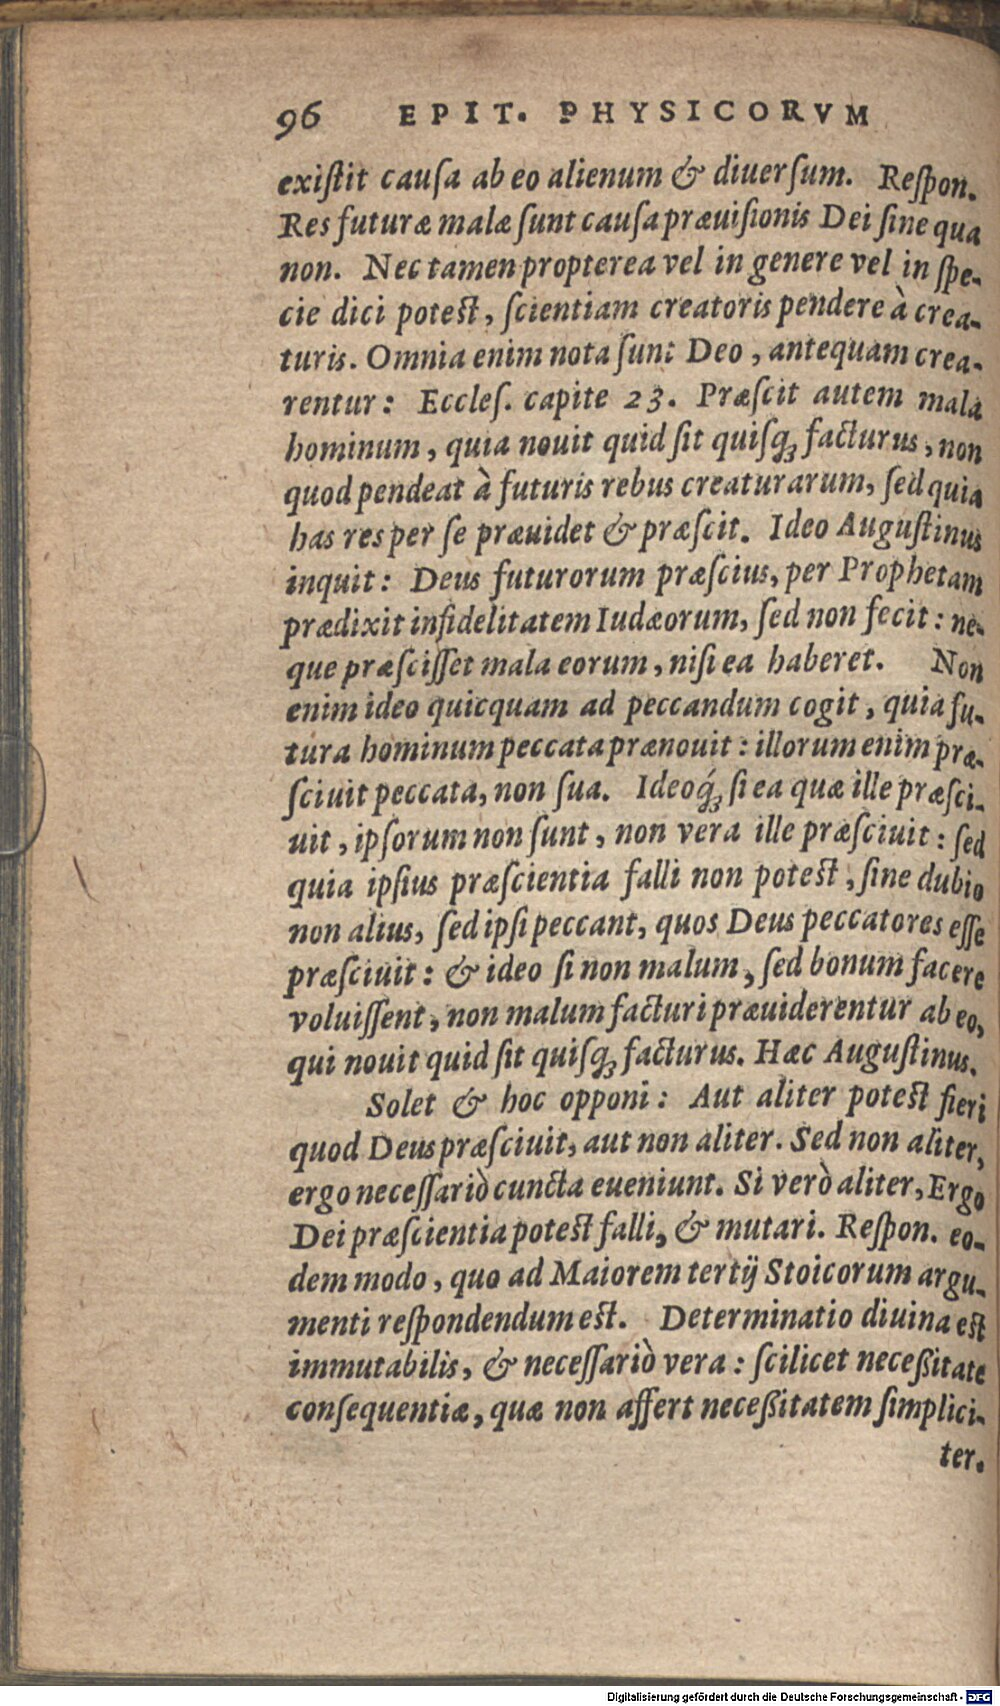 96 EPIT. PHYSICORVM
exiſtit cauſa ab eo alienum & diuerſum. Reſpon.
Res futuræ malæ ſunt cauſa præuiſionis Dei ſine qua
non. Nec tamen propterea vel in genere vel in ſpe-
cie dici poteſt, ſcientiam creatoris pendere à crea-
turis. Omnia enim nota ſunt Deo, antequam crea-
rentur: Eccleſ. capite 23. Præſcit autem mala
hominum, quia nouit quid ſit quiſq; facturus, non
quod pendeat à futuris rebus creaturarum, ſed quia
has res per ſe præuidet & præſcit. Ideo Auguſtinus
inquit: Deus futurorum præſcius, per Prophetam
prædixit infidelitatem Iudæorum, ſed non fecit: ne-
que præſciſſet mala eorum, niſi ea haberet. Non
enim ideo quicquam ad peccandum cogit, quia fu-
tura hominum peccata prænouit: illorum enim præ-
ſciuit peccata, non ſua. Ideoq́; ſi ea quæ ille præſci-
uit, ipſorum non ſunt, non vera ille præſciuit: ſed
quia ipſius præſcientia falli non poteſt, ſine dubio
non alius, ſed ipſi peccant, quos Deus peccatores eſſe
præſciuit: & ideo ſi non malum, ſed bonum facere
voluiſſent, non malum facturi præuiderentur ab eo,
qui nouit quid ſit quiſq; facturus. Hæc Auguſtinus.
Solet & hoc opponi: Aut aliter poteſt fieri
quod Deus præſciuit, aut non aliter. Sed non aliter,
ergo neceſſariò cuncta eueniunt. Si verò aliter, Ergo
Dei præſcientia poteſt falli, & mutari. Reſpon. eo-
dem modo, quo ad Maiorem tertij Stoicorum argu-
menti reſpondendum eſt. Determinatio diuina eſt
immutabilis, & neceſſariò vera: ſcilicet neceßitate
conſequentiæ, quæ non affert neceßitatem ſimplici-
ter.
Digitalisierung gefördert durch die Deutsche Forschungsgemeinschaft - DFG